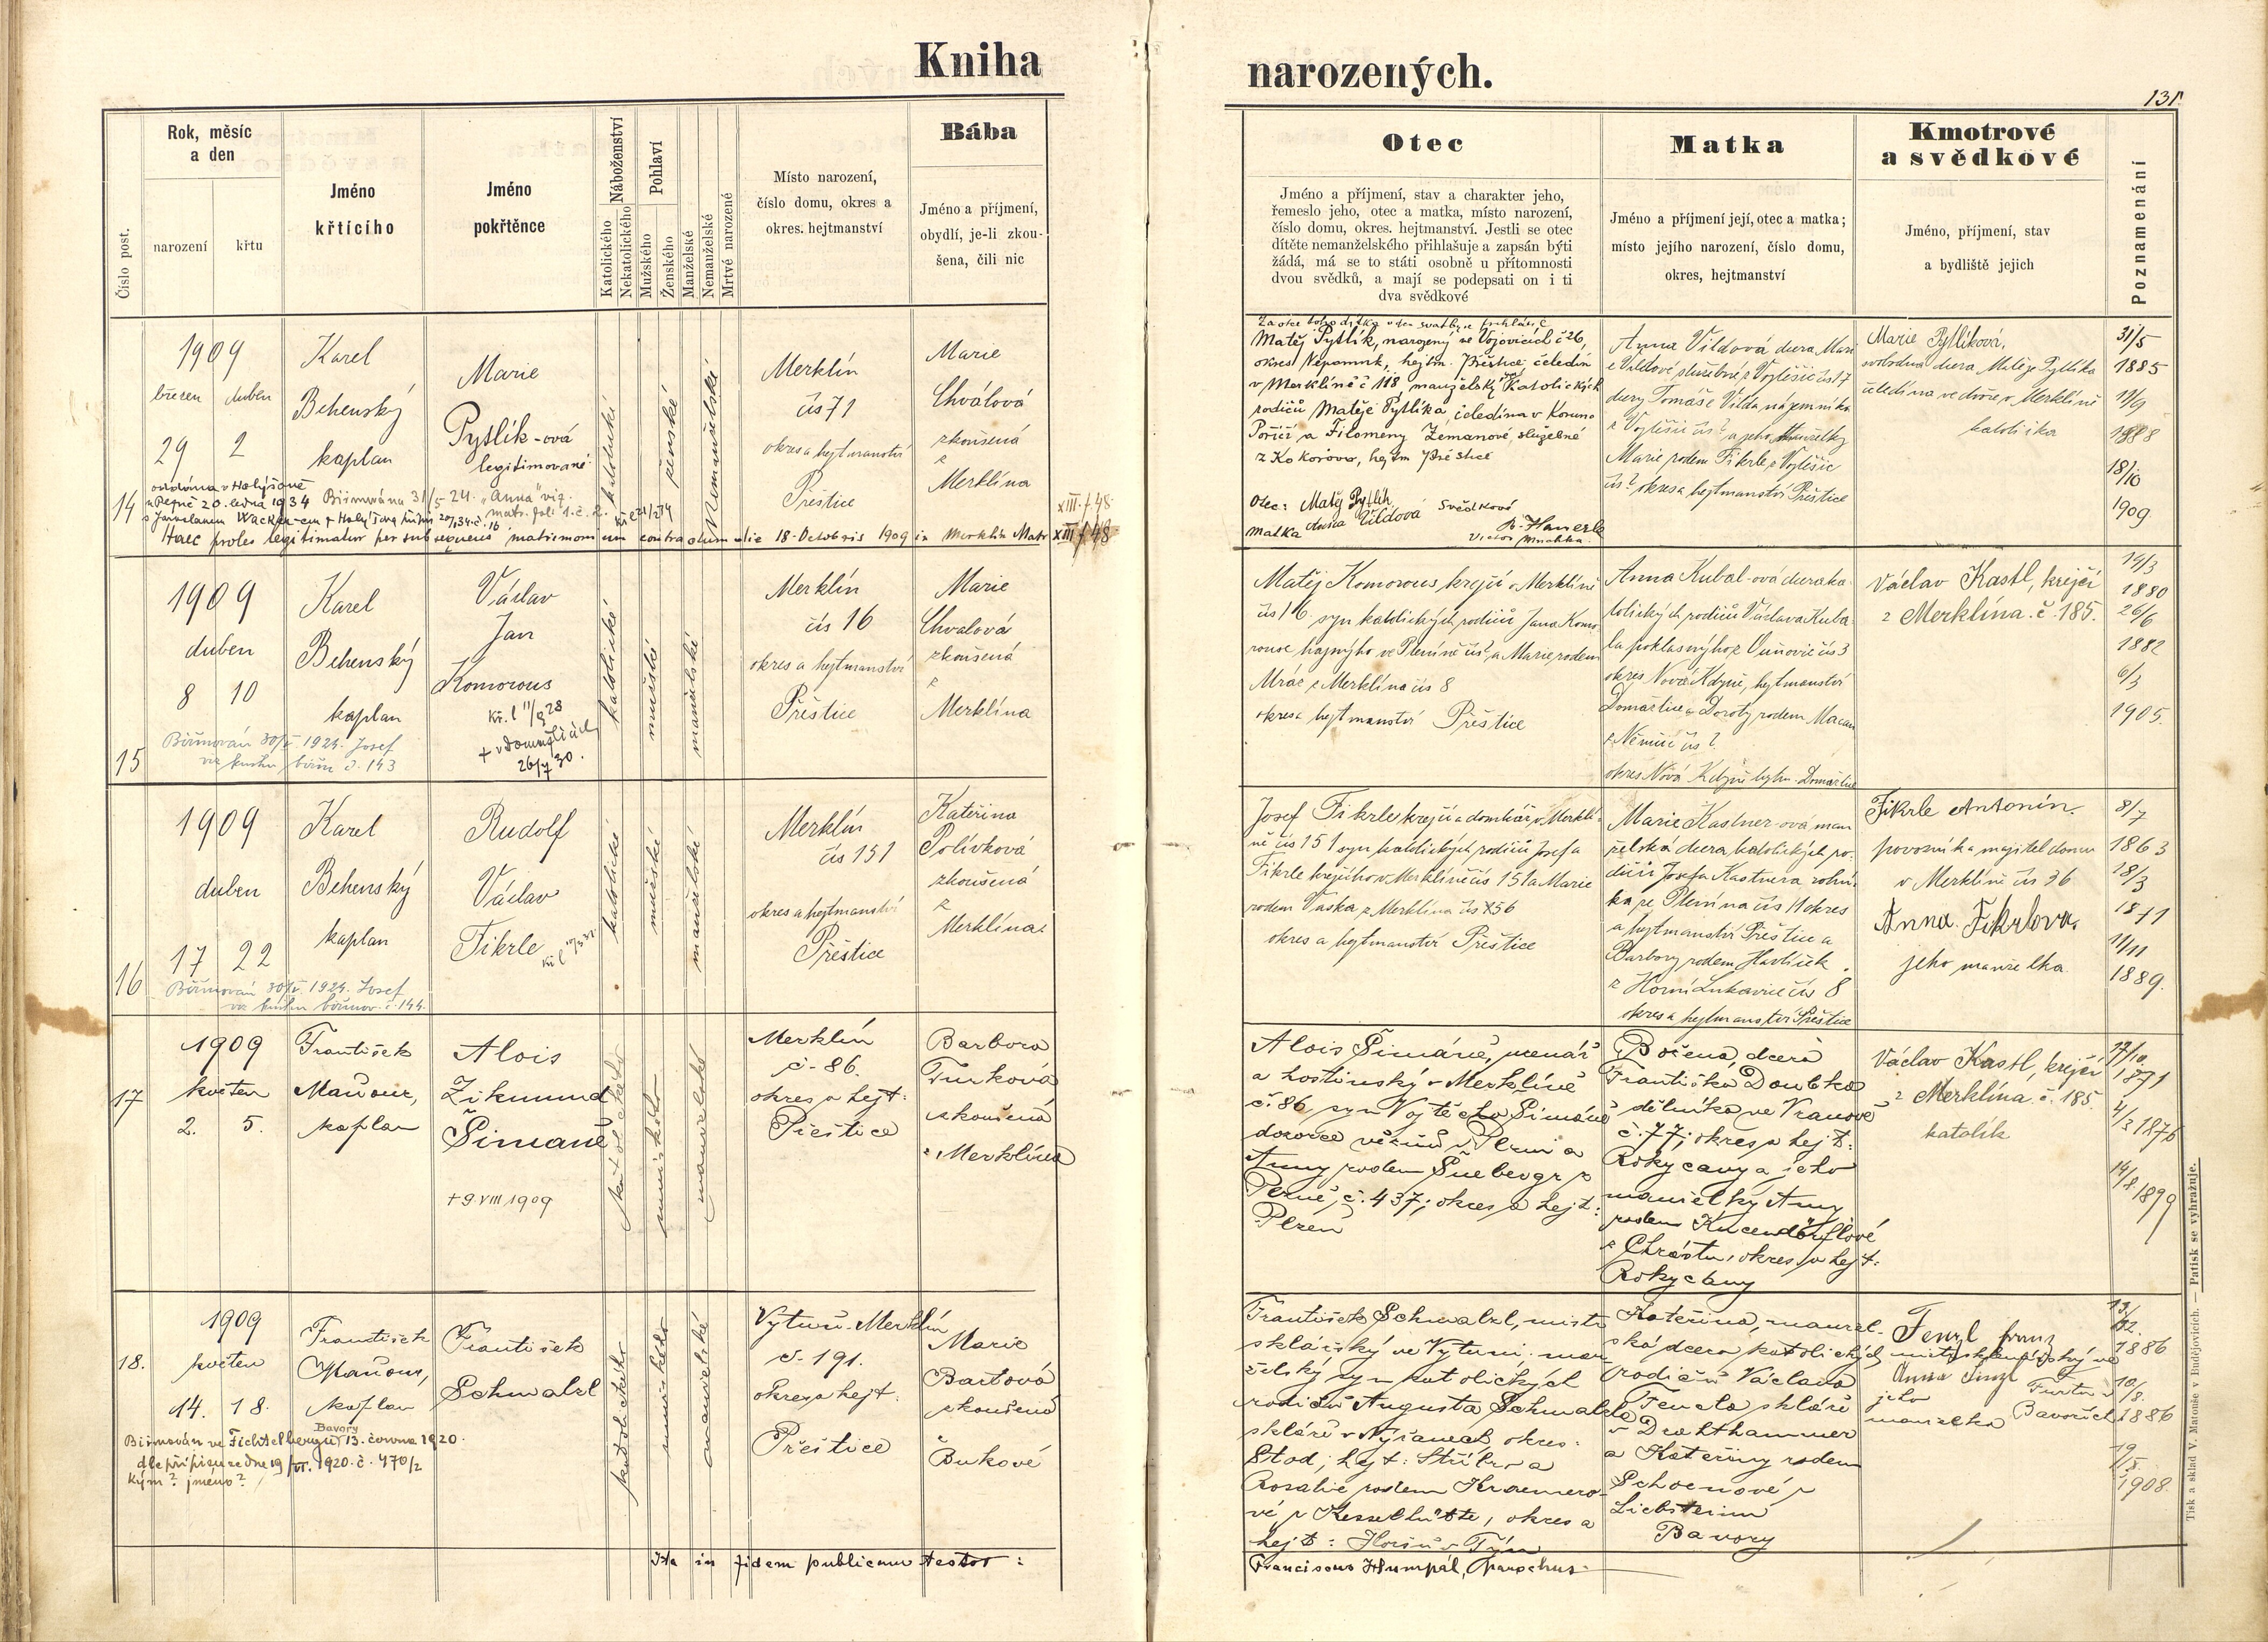 Kniha
narozených.
131.
Číslo post.
Rok, měsíc
a den
narození
křtu
Jméno
křtícího
Jméno
pokřtěnce
Náboženství
Katolického
Nekatolického
Pohlaví
Mužského
Ženského
Manželské
Nemanželské
Mrtvé narozené
Místo narození,
číslo domu, okres a
okres. hejtmanství
Bába
Jméno a příjmení,
obydlí, je-li zkou-
šena, čili nic
Otec
Jméno a příjmení, stav a charakter jeho,
řemeslo jeho, otec a matka, místo narození,
číslo domu, okres. hejtmanství. Jestli se otec
dítěte nemanželského přihlašuje a zapsán býti
žádá, má se to státi osobně u přítomnosti
dvou svědků, a mají se podepsati on i ti
dva svědkové
Matka
Jméno a příjmení její, otec a matka;
místo jejího narození, číslo domu,
okres, hejtmanství
Kmotrové
a svědkové
Jméno, příjmení, stav
a bydliště jejich
Poznamenání
14
1909
březen duben
29 2
Karel
Behenský
kaplan
Marie
Pytlík-ová
legitimované
katolické
ženské
Nemanželské
Merklín
čís 71
okres a hejtmanství
Přeštice
Marie
Chválová
zkoušená
z
Merklína
oddána v Holýšově
20. ledna 1934 Biřmována 31/5 24. "Anna" viz.
Haec proles legitimatur per subsequens matrimonium contractum die 18. Octobris 1909 in Merklín Matr XIII f 48
XIII. f. 48
Matěj Pytlík, narozený ve Vojovicích č 26,
okres Nepomuk, hejtm. Přeštice, čeledín
v Merklíně č 118, manželský katolických
rodičů Matěje Pytlíka čeledína v
Poříčí a Filomeny Zemanové, služebné
z Kokořova, hejtm Přeštice
Otec: Matěj Pytlík Svědkové
Matka Anna Vildová
Anna Vildová dcera Mari
e Vildové služebné z čís 17
dcery Tomáše Vilda nájemníka
a jeho Manželky
Marie rodem Fikrle z
čís? okres a hejtmanství Přeštice
Marie Pytlíková,
svobodná dcera Matěje Pytlíka
čeledína ve dvoře v Merklíně
katolička
31/5
1885
1888
18/10
1909
15
1909
duben
8 10
Karel
Behenský
kaplan
Václav
Jan
Komorous
kř. l 11/8 28
+ v Domažlicích
26/7 30.
katolické
mužské
manželské
Merklín
čís 16
okres a hejtmanství
Přeštice
Marie
Chvalová
zkoušená
z
Merklína
Biřmován 30/V. 1924. Josef
viz knihu biřm. č. 143
Matěj Komorous krejčí v Merklíně
čís 16 syn katolických rodičů Jana Komo-
rouse hajného ve Plemíně čís?, a Marie rodem
Mráz z Merklína čís 8
okres a hejtmanství Přeštice
Anna Kubal-ová dcera ka-
tolických rodičů Václava Kuba-
la čís 3
okres Nová Kdyně, hejtmanství
Domažlice a Doroty rodem Macan
z Němčic čís?
okres Nová Kdyně hejtm. Domažlice
Václav Kastl, krejčí
z Merklína. č. 185.
14/3
1880
26/6
1882
6/3
1905.
16
1909
duben
17 22
Karel
Behenský
kaplan
Rudolf
Václav
Fikrle
katolické
mužské
manželské
Merklín
čís 151
okres a hejtmanství
Přeštice
Kateřina
Polívková
zkoušená
z
Merklína.
Biřmován 30/V. 1924. Josef
viz knihu biřmov. č. 144.
Josef Fikrle krejčí a domkář v Merklí-
ně čís 151 syn katolických rodičů Josefa
Fikrle krejčího v Merklíně čís 151 a Marie
rodem Vaska z Merklína čís 56
okres a hejtmanství Přeštice
Marie Kastner-ová man
želská dcera katolických ro-
dičů Josefa Kastnera rolní-
ka ze Plemína čís 11 okres
a hejtmanství Přeštice a
Barbory rodem Havlíček
z Horní Lukavice čís 8
okres a hejtmanství Přeštice
Fikrle Antonín.
povozník a majitel domu
v Merklíně čís 36
Anna Fikrlova.
jeho manželka
8/7
1863
18/3
1871
11/11
1889.
17
1909
květen
2. 5.
František
Maňour,
kaplan
Alois
Zikmund
Šimané
+ 9 VIII 1909
katolického
mužského
manželské
Merklín
č. 86.
okres a hejt:
Přeštice
Barbora
Turková
zkoušená
z Merklína
a hostinský v Merklíně
č. 86 syn Vojtěcha
dozorce věznů v Plzni a
Anny rodem
Plzně, č. 437; okres a hejt:
Plzeň
Božena, dcera
Františka Doubka
dělníka ve Vranově
č. 77; okres a hejt:
Rokycany a jeho
manželky Anny
rodem
z Chrástu, okres a hejt:
Rokycany
Václav Kastl, krejčí
z Merklína. č. 185.
katolík
17/10
1871
4/3 1876
14/8 1899
18.
1909
květen
14. 18.
František
Maňour,
kaplan
František
Schmalzl
katolického
mužského
manželské
Vytuň-Merklín
č. 191.
okres a hejt:
Přeštice
Marie
Bartová
zkoušená
z
Bukové
Bavory
Biřmován ve Fichtelbergu 13. června 1920
dle přípisu ze dne 19/VI. 1920. č. 470/2
kým? jméno?
František Schmalzl, mistr
sklářský ve Vytuni. man-
želský syn katolických
rodičů Augusta Schmalzla
skláře v Nýřanech okres:
Stod; hejt: Stříbro a
Rosalie rodem Kraemero-
vé z Kesselhütte, okres a
hejt: Horšův Týn
Kateřina, manžel-
ská dcera katolických
rodičů Václava
Fencla skláře
v Drahthammer
a Kateřiny rodem
Schoenové z
Bavory
Fenzl Franz
Anna Fenzl
jeho
manželka
Bavořích
1886
10/8.
1886
19/5.
1908.
Ita in fidem publicam testor:
Franciscus Humpál, Parochus
Tisk a sklad V. Matouše v Budějovicích. — Patisk se vyhražuje.